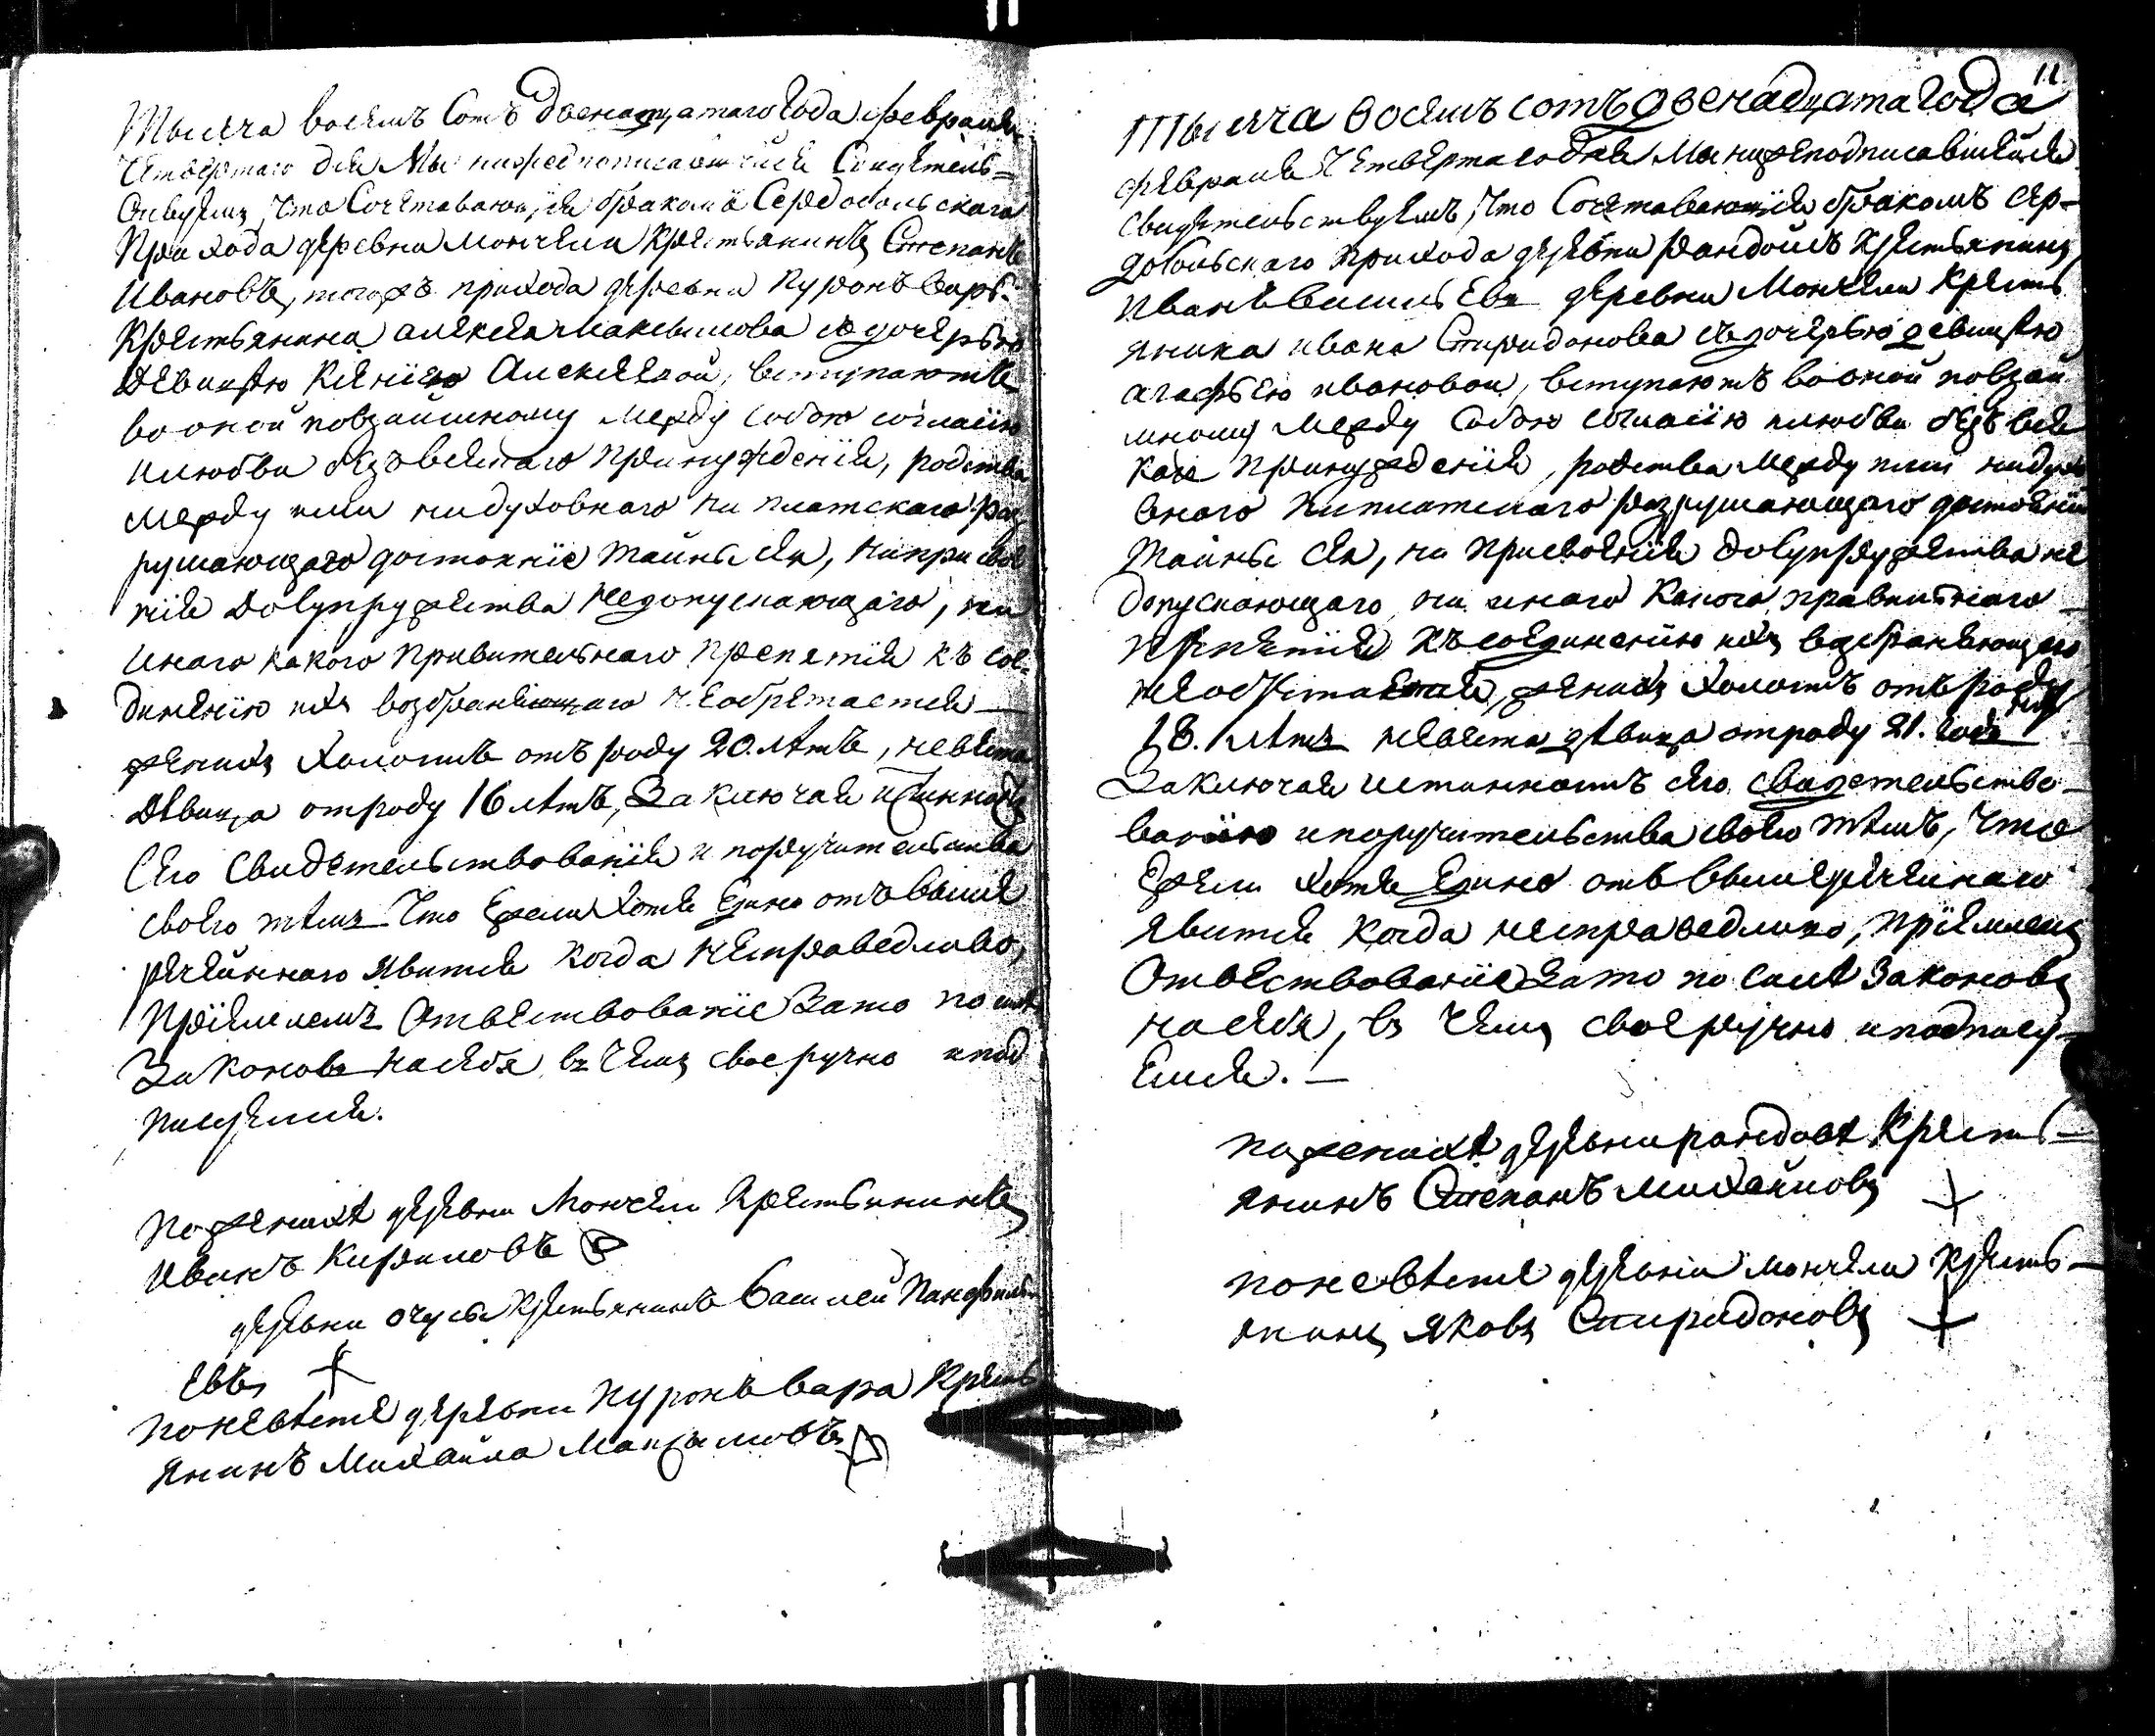 Тысяча восемъ Сотъ двенатцатаго года февраля
Четвертаго дня Мы нижеподписавшїйся Свидетель=
Ствуемъ, что Сочетавающїися бракомъ Сердобольскаго
Прихода деревни Мончели крестьянинъ Степанъ
Ивановъ, тогожъ прихода деревни Пуронъ варъ
Крестьянина алексея максимова съ дочерью
Девицею Ксенїею Алексеевой, вступаютъ
во оной повзаимному между собою согласїю
и любви безъ всякаго принужденїя, родства
между ими ни духовнаго ни плотскаго раз
рушающаго достоянїе тайны сея, ни присвое
нїя до супружества недопускающаго, ни
инаго какого правительнаго препятїя къ сое-
диненїю ихъ возбраняющаго необретается —
женихъ Холостъ отъ роду 20. летъ, невеста
Девица отроду 16 летъ, Заключая истинность
Сего Свидетельствованїя и поручительства
своего темъ Что ежели хотя Едино отъ выше
реченнаго явится когда нестраведливо,
Прїемлемъ Ответствованїе Зато по силе
Законовъ насебя въ чемъ своеручно и под
писуемся.
По женихе деревни Мончели крестьянинъ
Иванъ Кириловъ
деревни очусы крестьянинъ Василей Панфиль
евъ
поневесте деревни Пуронъ вара крест
янинъ Михаила Максимовъ
11
Тысяча восемъ сотъ двенадцата года
февраля Четвертаго дня Мы нижеподписавшейся
свидетельствуемъ, Что Сочетавающїися бракомъ сер-
добольскаго прихода деревни рандоилъ крестьянинъ
Иванъ Васильевъ деревни Мончели крестъ
янина ивана Спиридонова съ дочерью девицею
агафьею ивановой, вступаютъ во оной повзаи
мному между собою согласїю и любви безъ вся
каго принужденїя, родства между ими нидухо
внаго ниплотскаго разрушающаго достоянїя
тайны сея, ни присвоенїя до супружества не
допускающаго ни инаго какого правильнаго —
препятїя къ соединенїю ихъ возбраняющаго
необретается, женихъ холостъ отъ роду
18. летъ невеста девица отроду 21. годъ
Заключая истинность сего свидетельство —
ванїю и поручительства своего темъ, Что
Ежели хотя Едино отъ вышереченнаго
явится когда несправедливо, прїемлемъ
Ответствованїе Зато по силе Законовъ
насебя, въ Чемъ своеручно и подпису-
емся. —
по женихе деревни рандоле Крестъ —
янинъ Степанъ михайловъ
поневесте деревни мончели кресть —
янинъ Яковъ Спиридоновъ